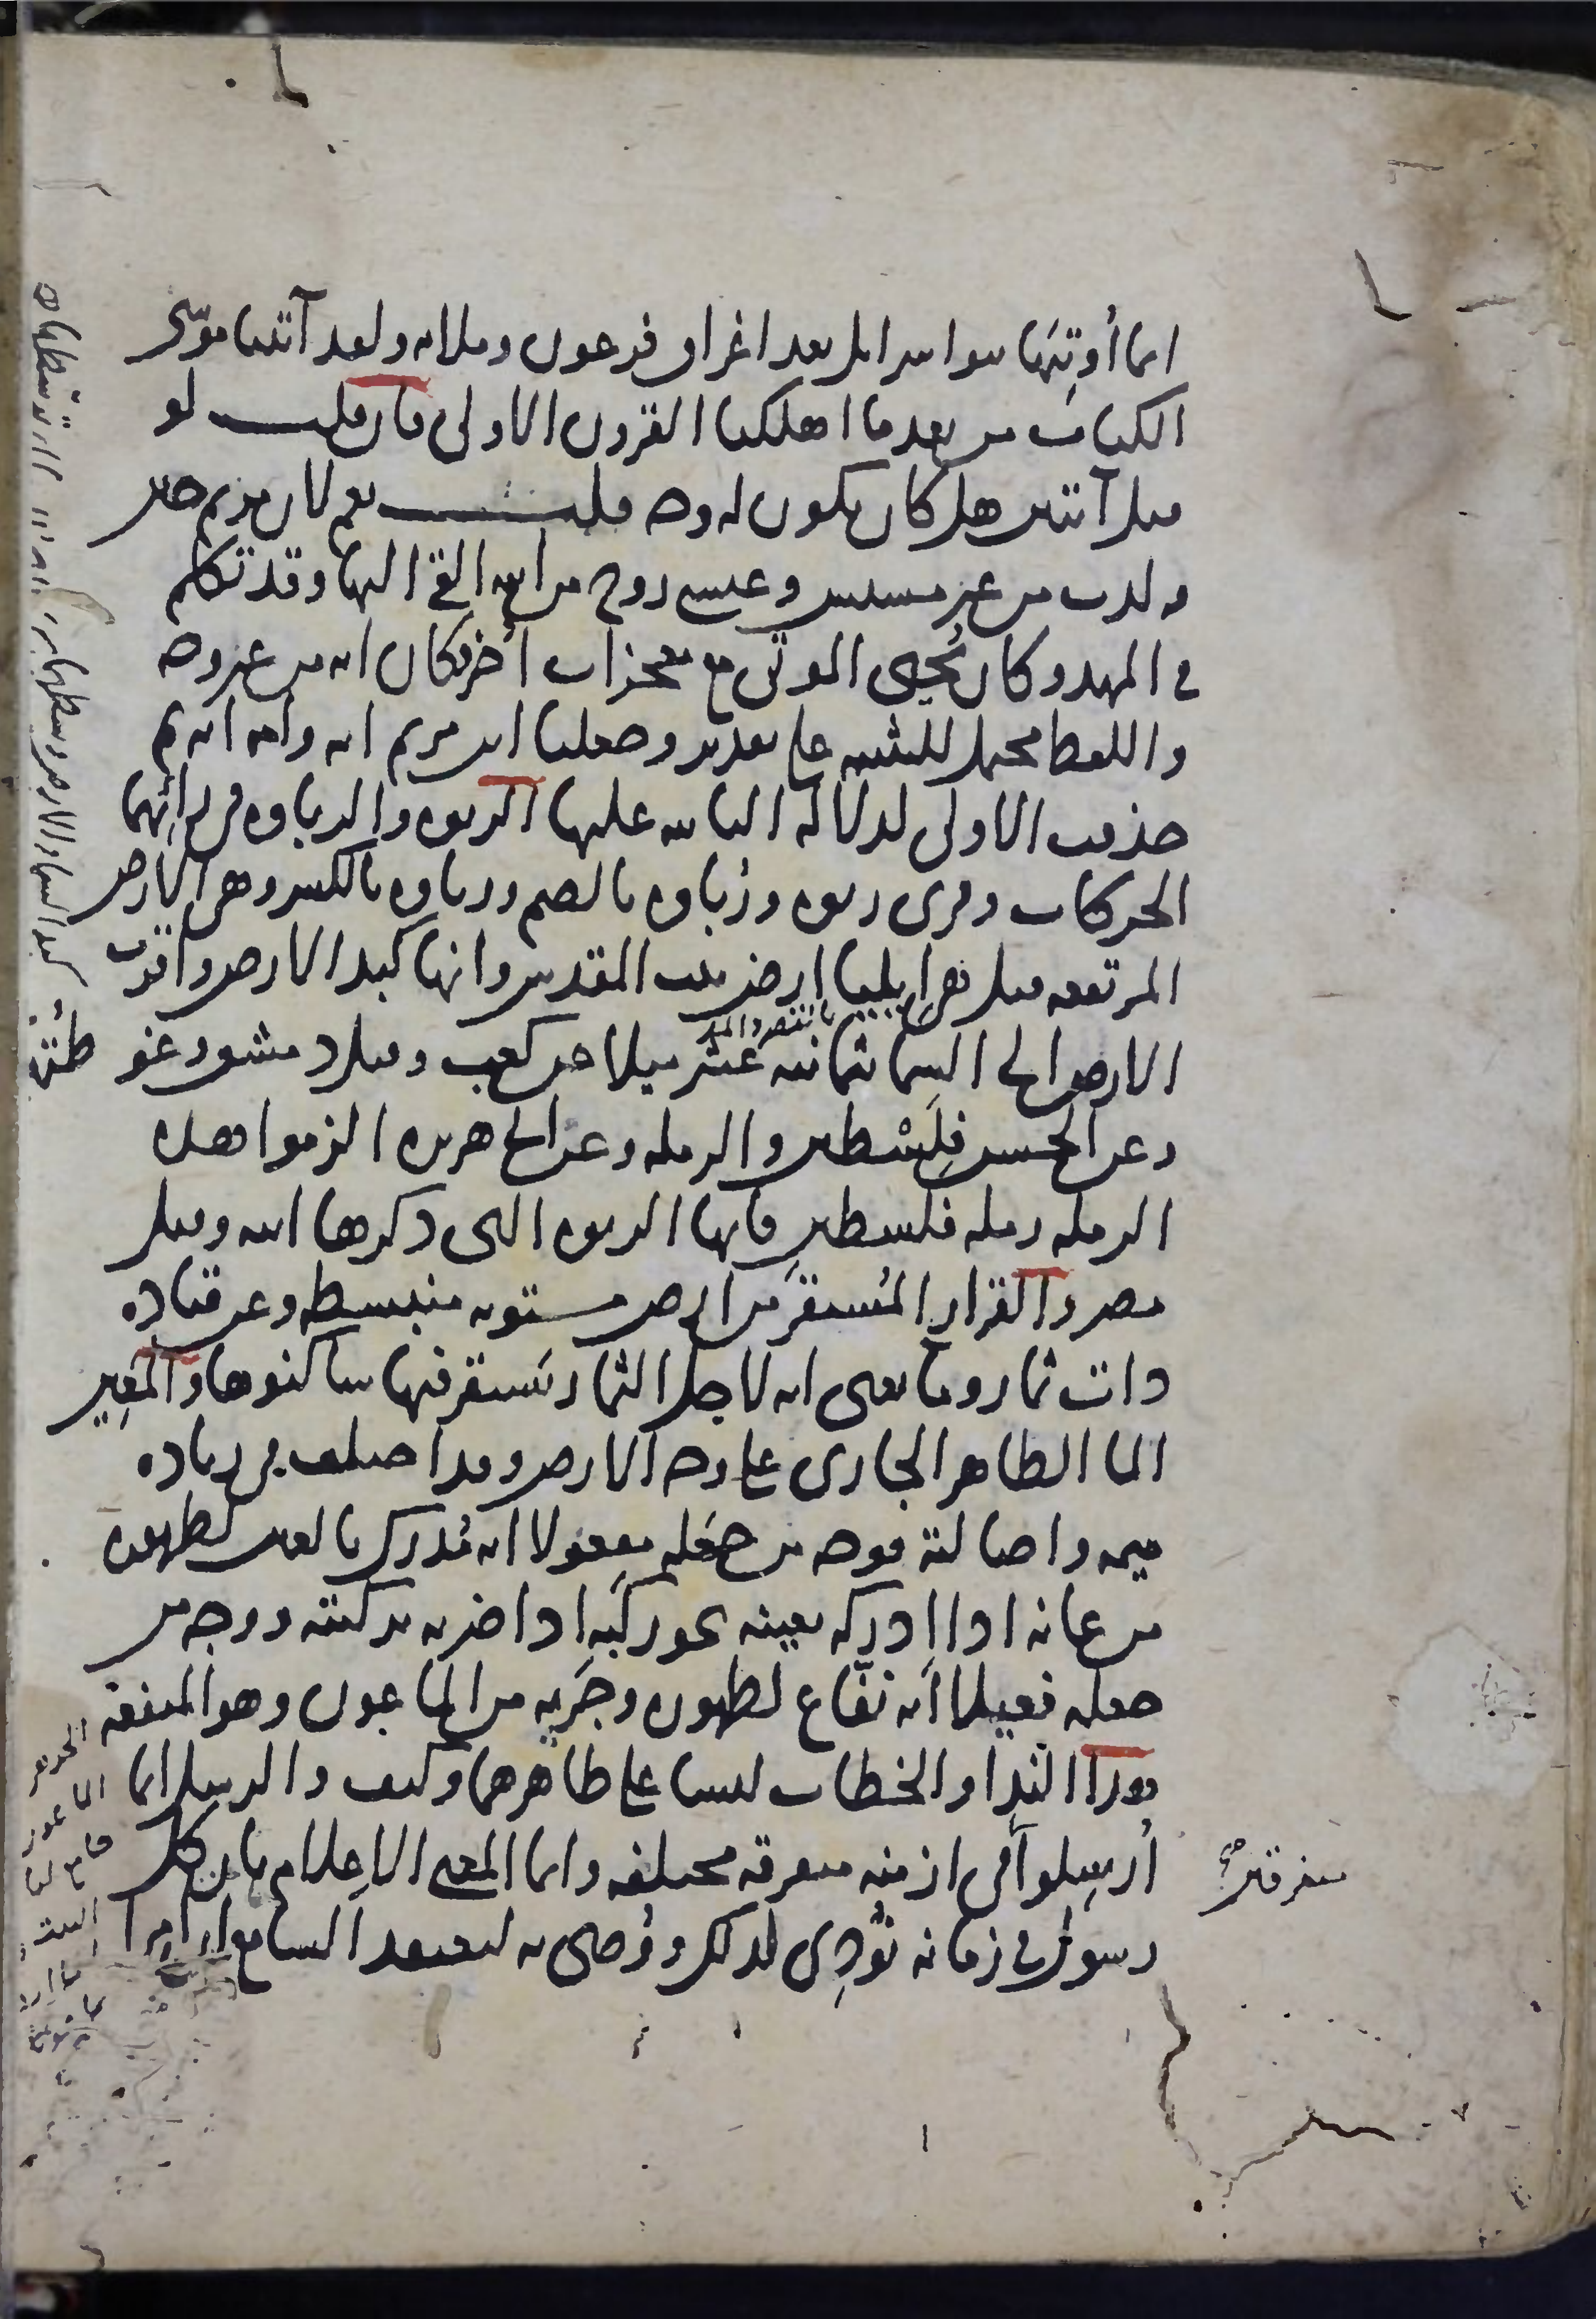 انما أوتيَها بنوا اسرائيل بعد اغراق فرعون وملائه ولقد آتينا موسى
الكتابَ من بعد ما اهلكنا القرون الاولى فان قلت لو
قيل آيتين هل كان يكون له وجه قلت نعم لان مريم حين
ولدت من غير مسيس وعيسى روح من الله القى اليها وقد تكلم
في المهد وكان يُحيى الموتى مع معجزات أخر فكان آية من غير وجه
واللفظ محتمل للتثنية على تقدير وجعلنا ابن مريم اية وامه اية ثم
حذفت الاولى لدلالة الثانية عليها الربوة والرباوة في رائهما
الحركات وقرى ربوة ورُباوة بالضم ورباوة بالكسر وهى الارض
المرتفعة قيل هى إيليا ارض بيت المقدس وانها كبد الارض واقرب
بالقصر والمد
الارض الى السما بثمانية عشر ميلا عن كعب وقيل دمشق وغو طتُها
وعن الحسن فِلَسْطين والرملة وعن ابى هريرة الزموا هذه
الرملة رملة فلسطين فانها الربوة التى ذكرها الله وقيل
مصر والقرار المُستقرّ من ارض مستوية منبسطة وعن قتادة
ذات ثمار وما يعنى انه لاجل الثمار يَستقر فيها ساكنوها والمَعِين
الما الظاهر الجارى على وجه الارض وقد اختلف في زيادة
ميمه واصالته فوجه من جعَله مفعولا انه مُدرَك بالعين لظهوره
من عانه اذا ادركه بعينه نحو ركَبه اذا ضربه بركبته ووجه من
جعله فعيلا أنه نفّاع لظهوره وجَريه من الماعون وهو المنفعة
هذا النِدا والخطاب ليسا على ظاهرهما وكيف والرسل انما
أُرسِلوا في ازمنة متفرقة مختلفة وانما المعنى الاِعلام بان كل
متفرقين صح
رسول في زمانه نُودِى لذلك ووُصى به ليعتقد السامع ان امرا